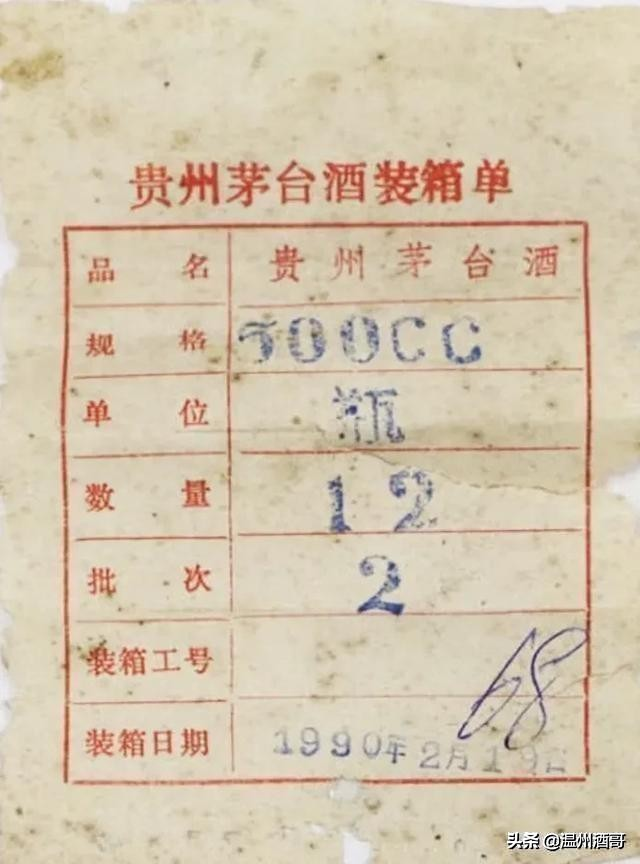 贵州茅台酒装箱单
品名 贵州茅台酒
规格 500CC
单位 瓶
数量 12
批次 2
装箱工号 68
装箱日期 1990年2月19日
头条 @温州酒哥